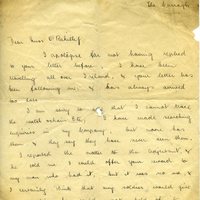 The Curragh
Dear Miss O'Rahilly
I apologise for not having replied
to your letter before, I have been
travelling all over Ireland, & your letter has
been following me, & have always arrived
too late
I am sorry to say that I cannot trace
the watch & chain etc, I have made searching
enquiries in my Company, but none has
them & they say they have never seen them,
I reported the matter to the Adjutant, &
he told me I could offer your reward to
any man who had it, but it was no use, &
I certainly think that any soldier would give